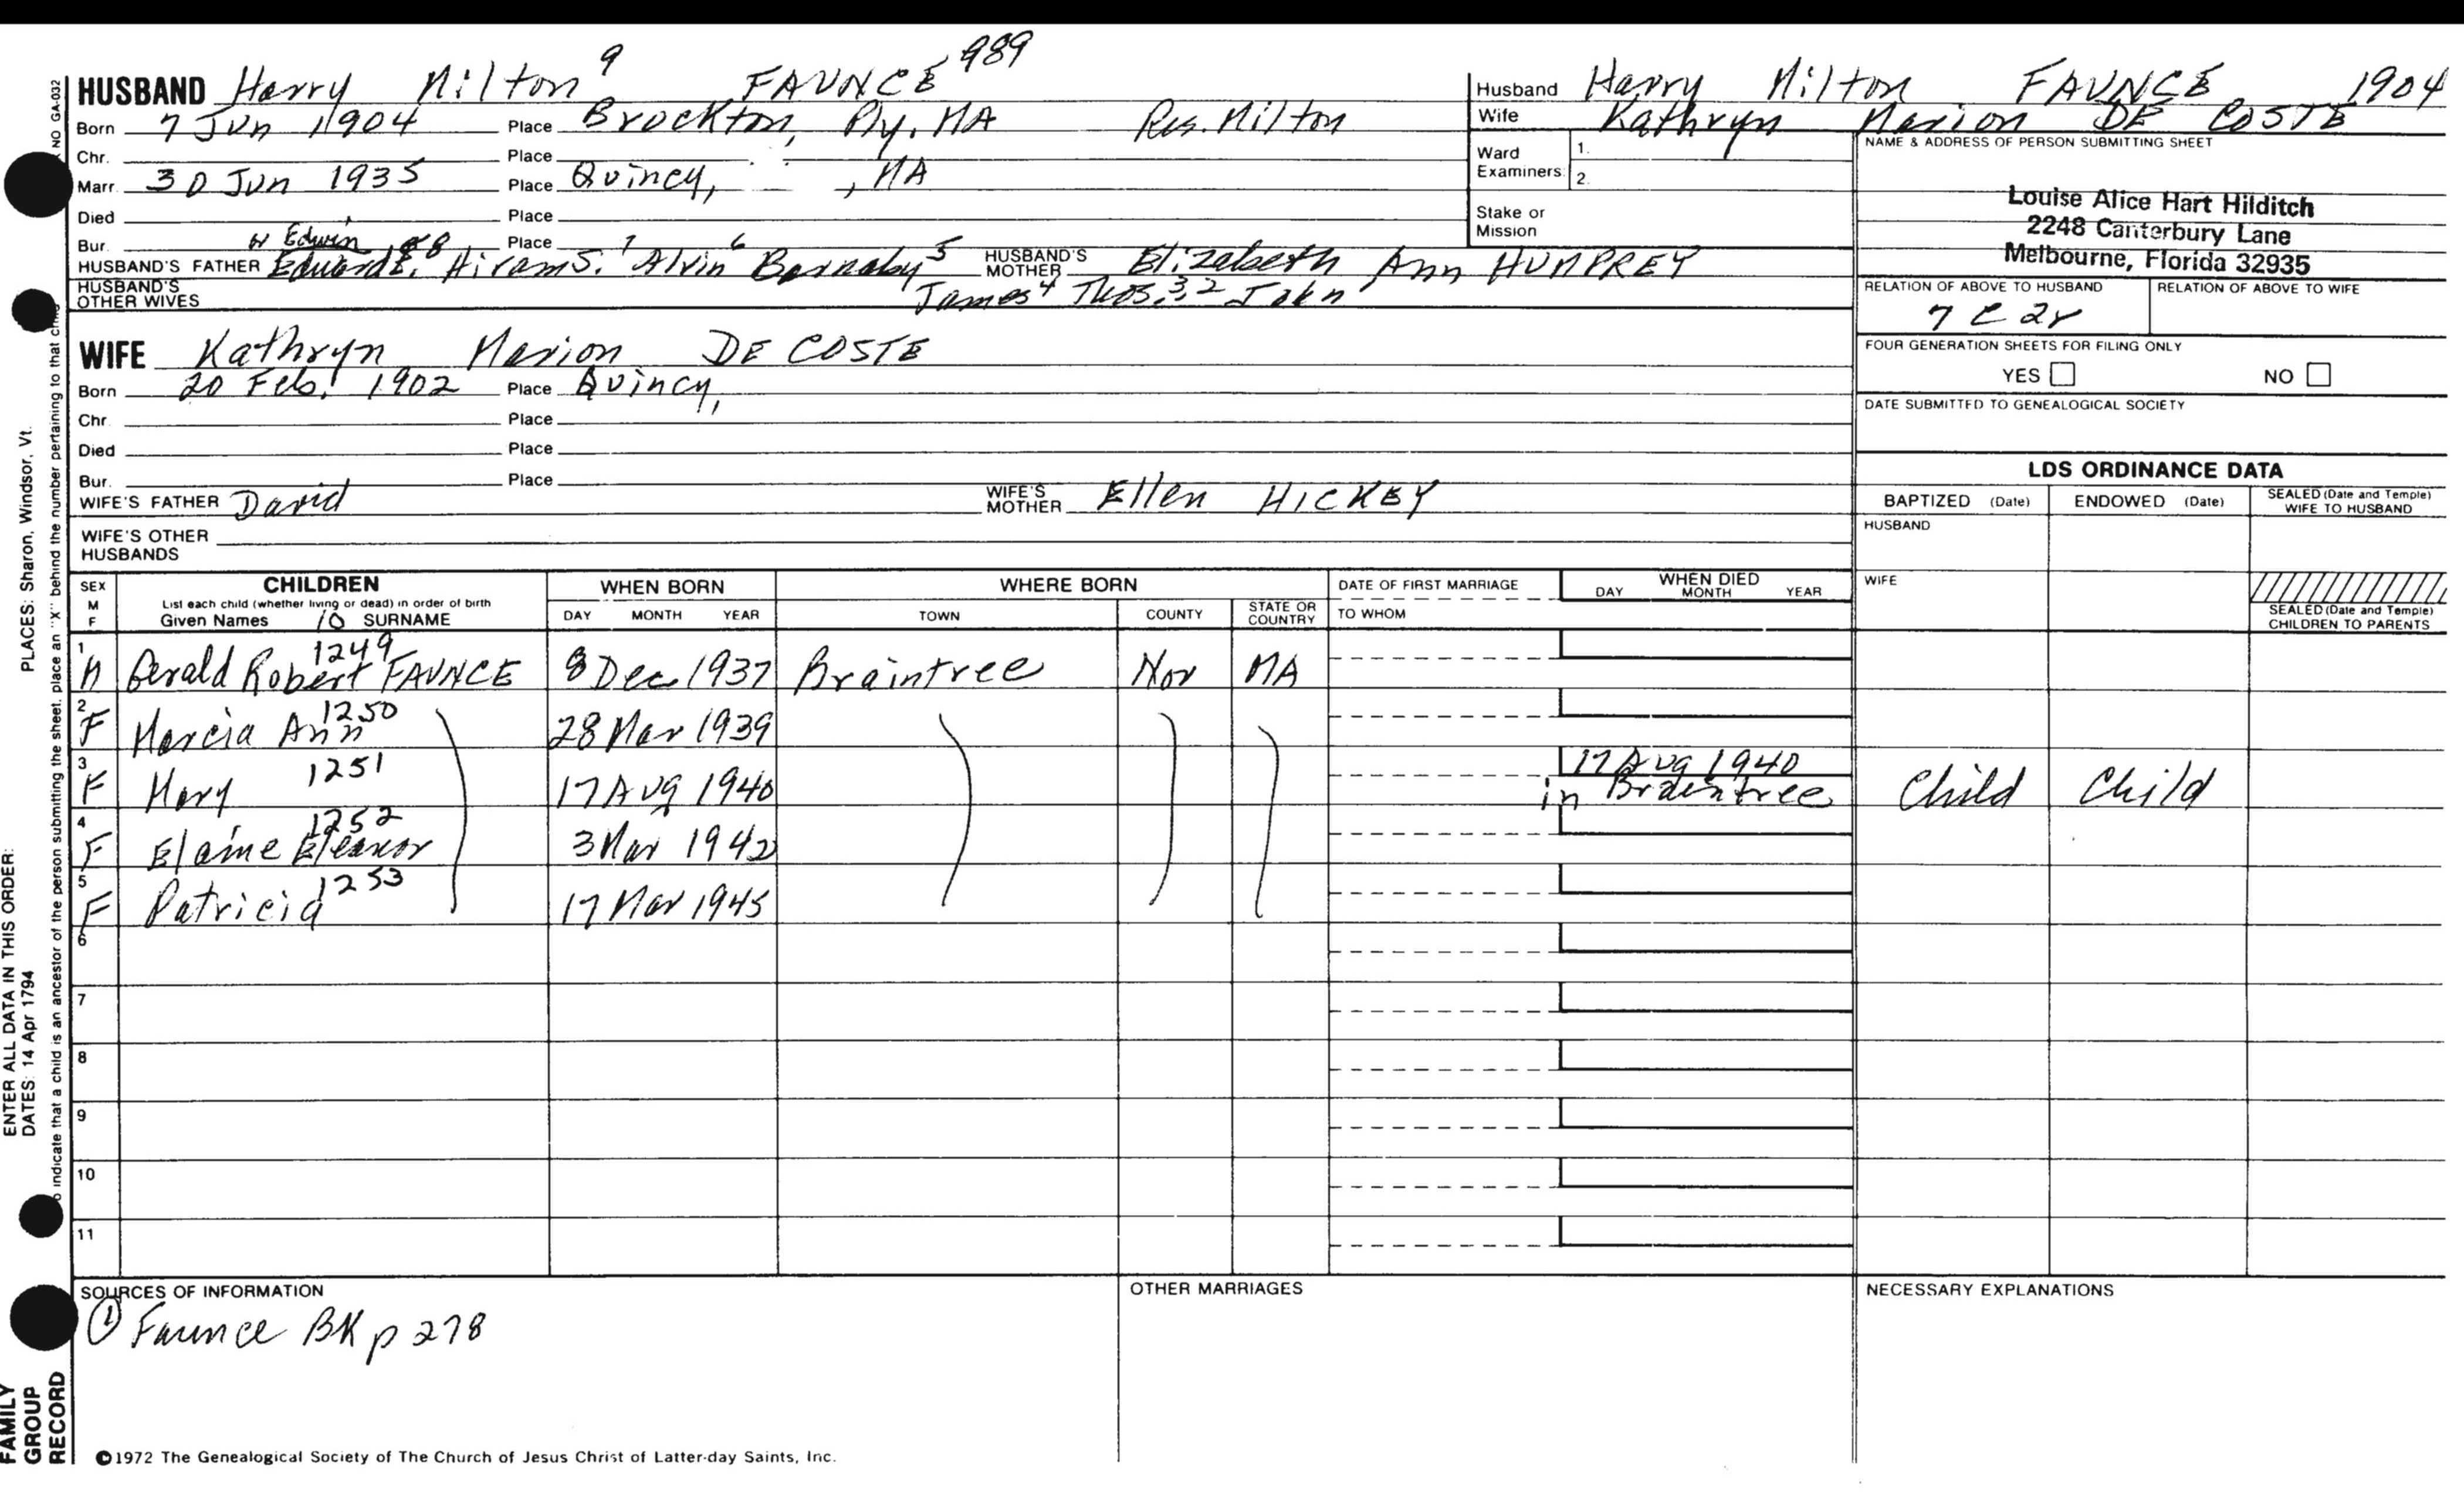 HUSBAND Harry Milton 9 FAUNCE 989
Born 7 Jun 1904 Place Brockton, Ply. MA Res. Milton
Chr. Place
Marr. 30 Jun 1935 Place Quincy, , MA
Died Place
Bur. Place
Edwin
HUSBAND'S FATHER Edward E. 8 Hiram S. 7 Alvin 6 Barnaby 5 HUSBAND'S MOTHER Elizabeth Ann HUMPREY
HUSBAND'S OTHER WIVES James 4 Thos. 3, 2 John 1
Husband Harry Milton FAUNCE 1904
Wife Kathryn Marion DE COSTE
Ward Examiners: 1. 2.
Stake or Mission
NAME & ADDRESS OF PERSON SUBMITTING SHEET
Louise Alice Hart Hilditch
2248 Canterbury Lane
Melbourne, Florida 32935
RELATION OF ABOVE TO HUSBAND RELATION OF ABOVE TO WIFE
7 C 2r
FOUR GENERATION SHEETS FOR FILING ONLY
YES NO
DATE SUBMITTED TO GENEALOGICAL SOCIETY
WIFE Kathryn Marion DE COSTE
Born 20 Feb. 1902 Place Quincy,
Chr. Place
Died Place
Bur. Place
WIFE'S FATHER David WIFE'S MOTHER Ellen HICKEY
WIFE'S OTHER HUSBANDS
LDS ORDINANCE DATA
BAPTIZED (Date) ENDOWED (Date) SEALED (Date and Temple) WIFE TO HUSBAND
HUSBAND
WIFE
SEALED (Date and Temple) CHILDREN TO PARENTS
SEX M F CHILDREN WHEN BORN WHERE BORN DATE OF FIRST MARRIAGE WHEN DIED
List each child (whether living or dead) in order of birth
Given Names 10 SURNAME DAY MONTH YEAR TOWN COUNTY STATE OR COUNTRY TO WHOM DAY MONTH YEAR
1 M Gerald Robert 1249 FAUNCE 8 Dec 1937 Braintree Nor MA
2 F Marcia Ann 1250 28 Mar 1939
3 F Mary 1251 17 Aug 1940 17 Aug 1940 in Braintree Child Child
4 F Elaine Eleanor 1252 3 Mar 1942
5 F Patricia 1253 17 Mar 1945
6
7
8
9
10
11
SOURCES OF INFORMATION OTHER MARRIAGES NECESSARY EXPLANATIONS
① Faunce BK p 278
©1972 The Genealogical Society of The Church of Jesus Christ of Latter-day Saints, Inc.
NO GA-032
o indicate that a child is an ancestor of the person submitting the sheet, place an "X" behind the number pertaining to that
PLACES: Sharon, Windsor, Vt.
ENTER ALL DATA IN THIS ORDER:
DATES: 14 Apr 1794
FAMILY
GROUP
RECORD